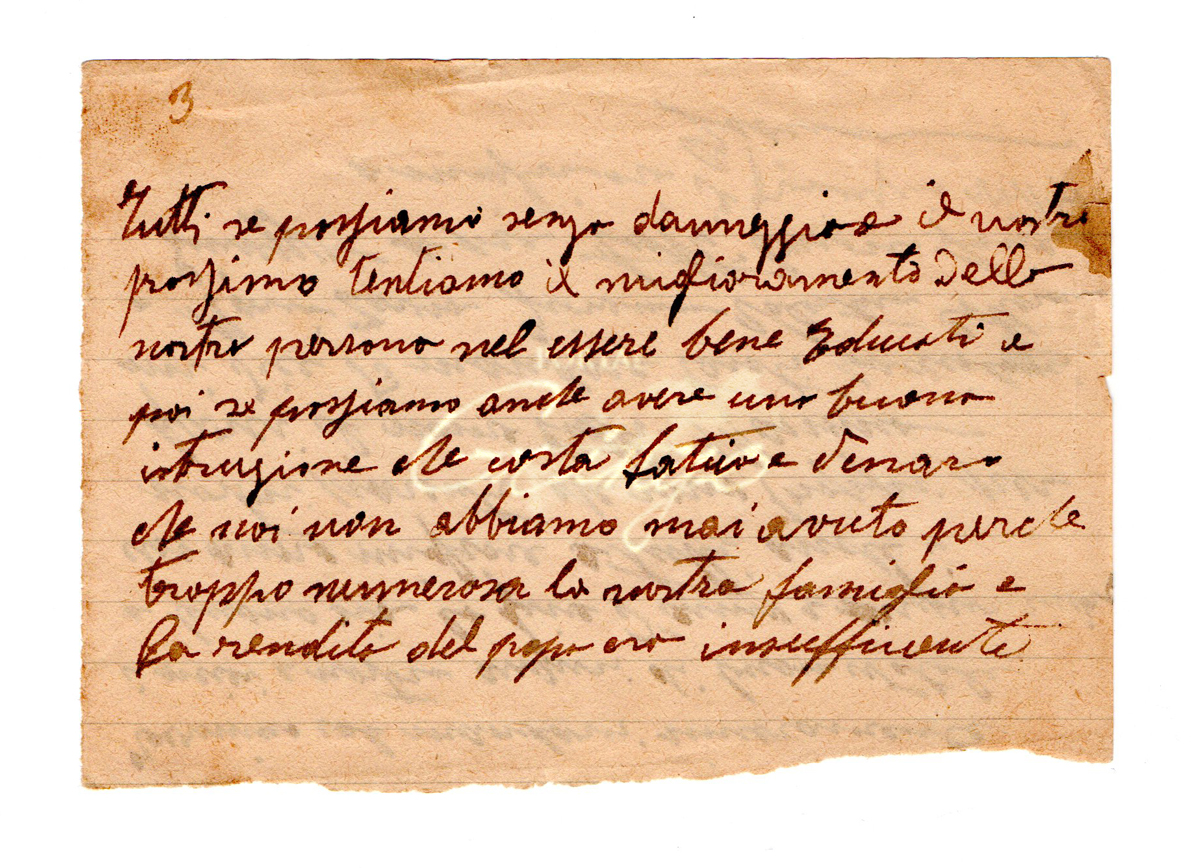 3
Tutti se possiamo senza danneggiare il nostro
prossimo tentiamo il miglioramento della
nostra persona nel essere bene Educati e
poi se possiamo anche avere una buona
istruzione che costa fatica e denaro
che noi non abbiamo mai avuto perche
troppo numerosa la nostra famiglia e
la rendita del papa era insufficiente